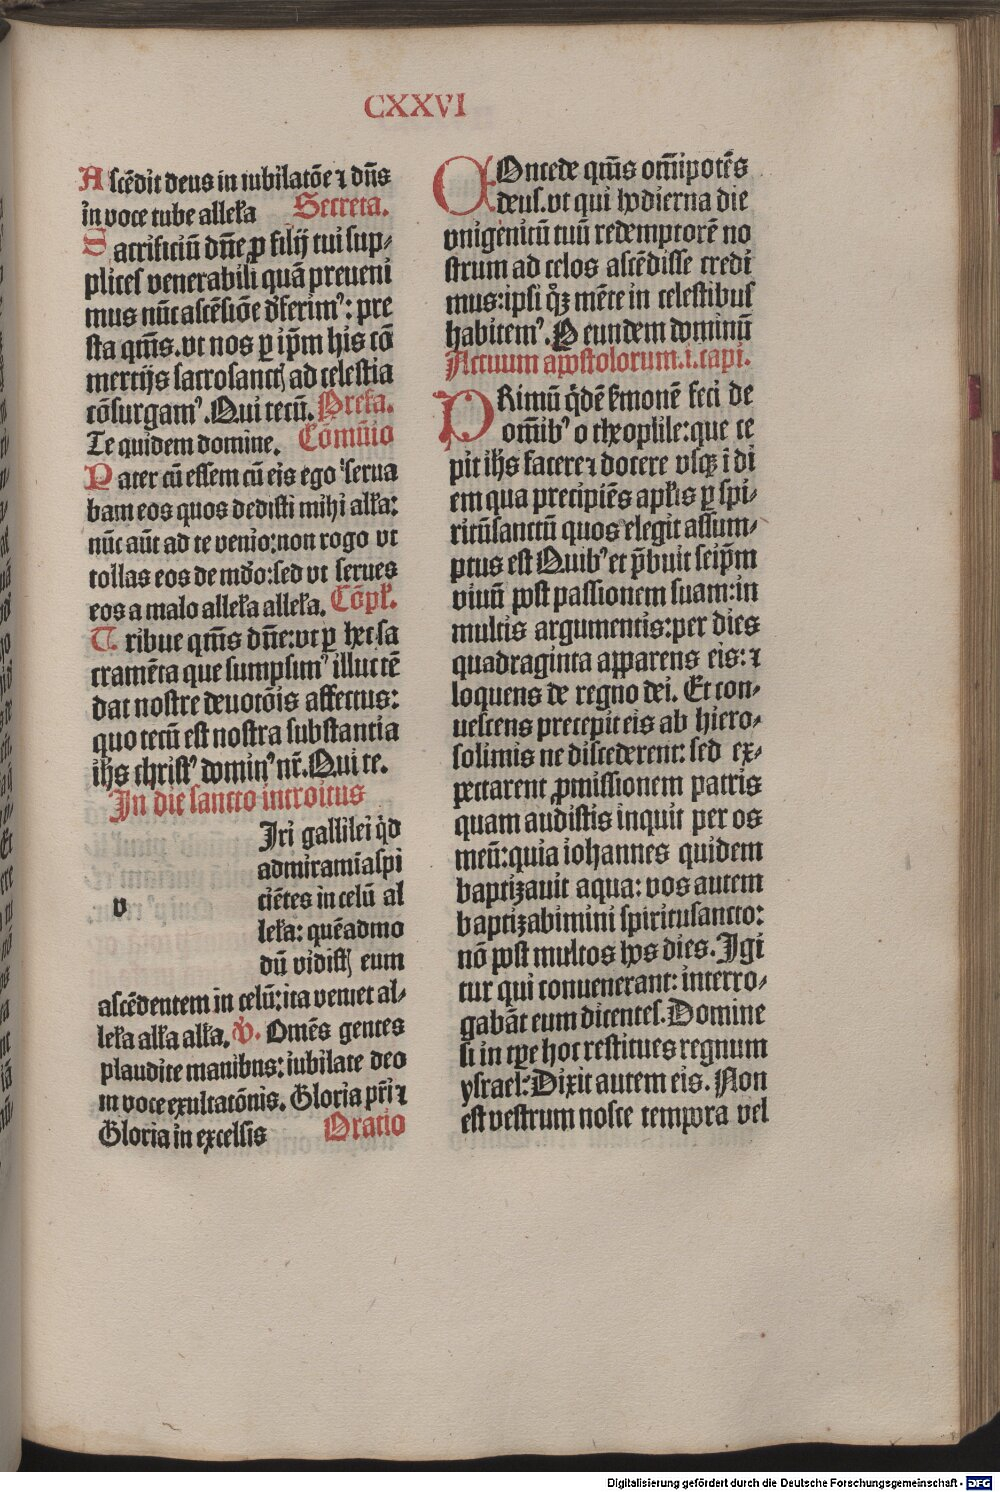 CXXVI
Ascēdit deus in iubilatōe ⁊ dn̄s
in voce tube allel̄a Secreta.
Sacrificiū dn̄e ꝓ filij tui sup⸗
plices venerabili quā preueni
mus nūc ascēsiōe deferimꝰ: pre
sta qm̄s. vt nos ꝑ ip̄m his cō
mercijs sacrosanctꝭ ad celestia
cōsurgamꝰ. Qui tecū. Prefa.
Te quidem domine. Cōmūio
Pater cū essem cū eis ego serua
bam eos quos dedisti mihi all̄a:
nūc aūt ad te venio: non rogo vt
tollas eos de mūdo: sed vt serues
eos a malo allel̄a allel̄a. Cōpl̄.
Tribue qm̄s dn̄e: vt ꝑ hec sa
cramēta que sumpsimꝰ illuc tē
dat nostre deuotōis affectus:
quo tecū est nostra substantia
ih̄s christꝰ dominꝰ nr̄. Qui te.
In die sancto introitus
v
Iri gallilei qd
admiramīaspi
ciētes in celū al
lel̄a: quēadmo
dū vidistꝭ eum
ascēdentem in celū: ita veniet al⸗
lel̄a all̄a all̄a. ℣. Omēs gentes
plaudite manibus: iubilate deo
in voce exultatōnis. Gloria pr̄i ⁊
Gloria in excelsis Oratio
COncede qm̄s om̄ipotēs
deus. vt qui hodierna die
vnigenitū tuū redemptorē no
strum ad celos ascēdisse credi
mus: ipsi qꝫ mēte in celestibus
habitemꝰ. P eundem dominū
Actuum apostolorum. i. capi.
PRimū qdē sermonē feci de
om̄ibꝰ o theophile: que ce
pit ih̄s facere ⁊ docere vsqꝫ ī di
em qua precipiēs apl̄is ꝑ spi⸗
ritūsanctū quos elegit assum⸗
ptus est Quibꝰ et p̄buit seip̄m
viuū post passionem suam: in
multis argumentis: per dies
quadraginta apparens eis: ⁊
loquens de regno dei. Et con⸗
uescens precepit eis ab hiero⸗
solimis ne discederent: sed ex⸗
pectarent ꝓmissionem patris
quam audistis inquit per os
meū: quia iohannes quidem
baptizauit aqua: vos autem
baptizabimini spiritusancto:
nō post multos hos dies. Igi
tur qui conuenerant: interro⸗
gabāt eum dicentes. Domine
si in tꝑe hoc restitues regnum
ysrael: Dixit autem eis. Non
est vestrum nosce tempora vel
Digitalisierung gefördert durch die Deutsche Forschungsgemeinschaft - DFG